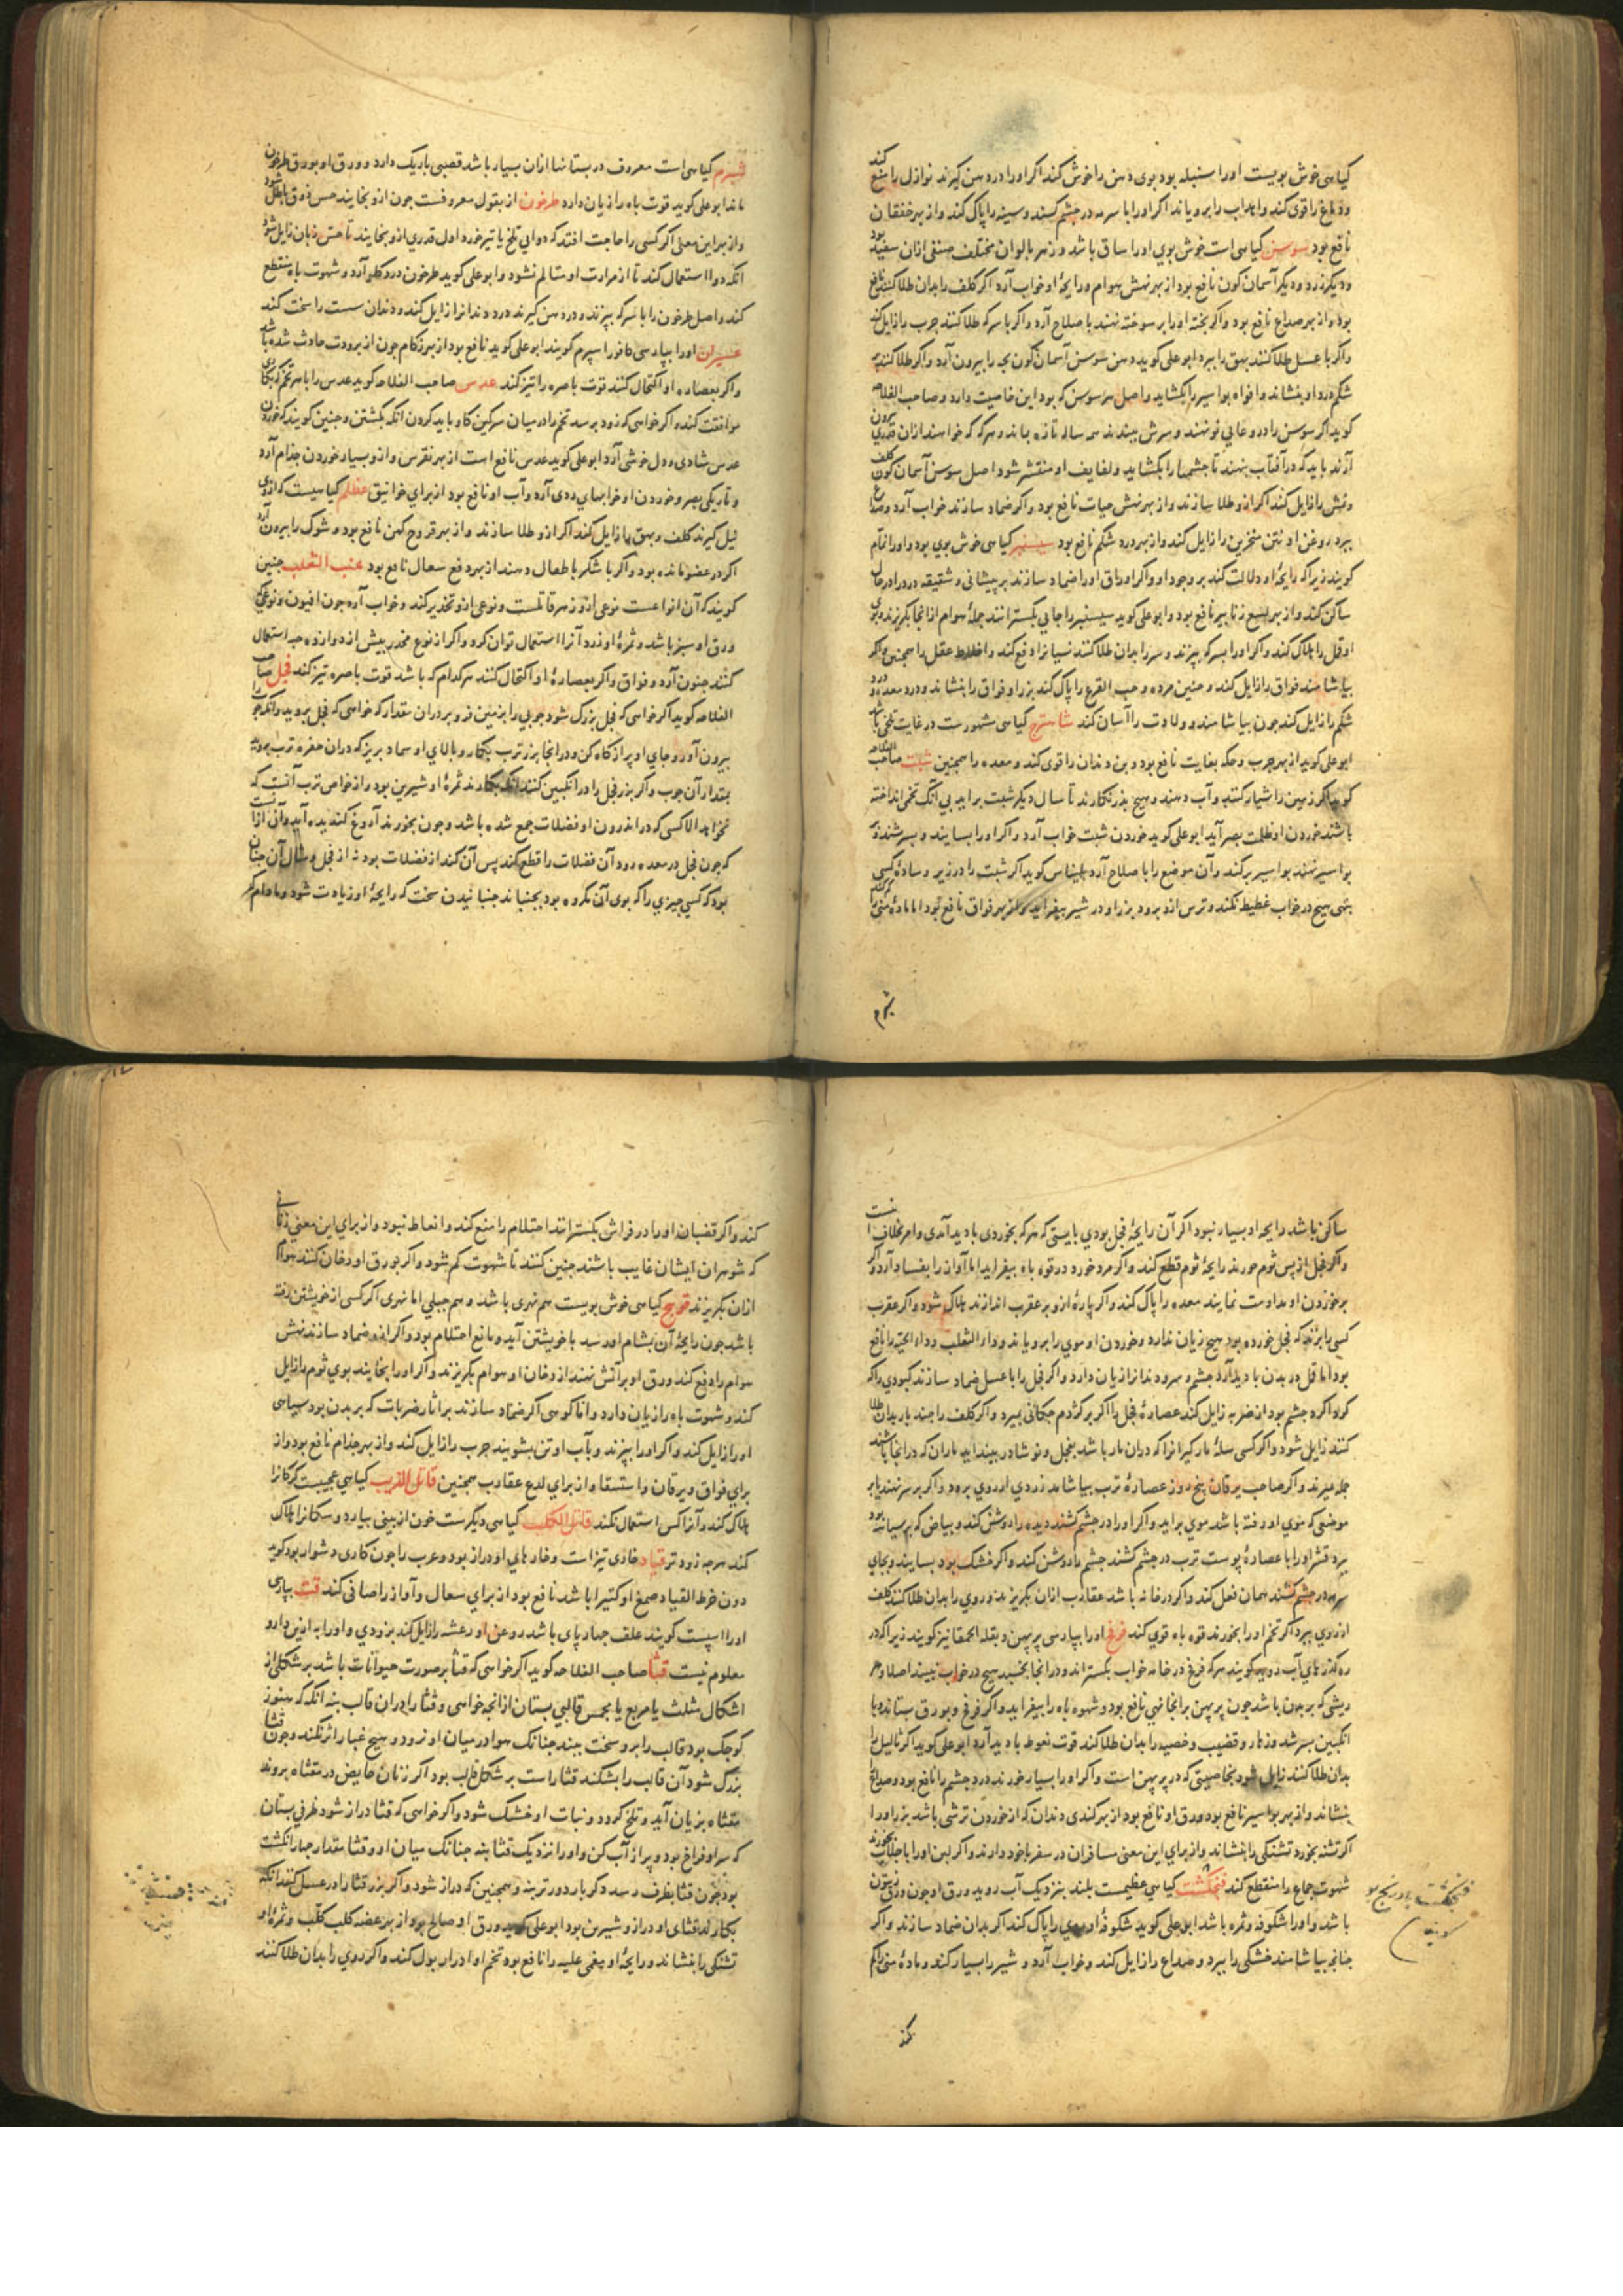 کیاهی خوش بویست اورا سنبله بود بوی دهن را خوش کند اکر اورا در دهن کیرند نوازل را منع کند
و دماغ را قوی کند واهداب را برویاند اکر اورا با سرمه در چشم کشند وسینه را پاک کند واز بهر خفقان
نافع بود سوسن کیاهی است خوش بوی اورا ساق باشد وزهر بالوان مختلف صنفی ازان سفید بود
و دیکر زرد و دیکر آسمان کون نافع بود از بهر نهش هوام و رایحهٔ او خواب آرد اکر کلف را بدان طلا کنند نافع
بود واز بهر صداع نافع بود واکر پخته اورا بر سوخته نهند باصلاح آرد واکر با سرکه طلا کنند جرب را زایل کند
واکر با عسل طلا کنند بهق را ببرد ابو علی کوید دهن سوسن آسمان کون بچه را بیرون آرد واکر طلا کنند
شکم درد او بنشاند وافواه بواسیر را بکشاید واصل هر سوسن که بود این خاصیت دارد وصاحب الفلاحه
کوید اکر سوسن را در وعایی نو نهند وسرش ببندند همه ساله تازه بماند وهرکه که خواهند ازان قدری بیرون
آرند باید که در آفتاب بنهند تا چشمها را بکشاید ولفایف او منتشر شود اصل سوسن آسمان کون کلف
ونمش را زایل کند اکر ازو طلا سازند واز بهر نهش حیات نافع بود واکر ضماد سازند خواب آرد وصداع
ببرد روغن او نتن منخرین را زایل کند واز بهر درد شکم نافع بود سیسنبر کیاهی خوش بوی بود واورا نمام
کویند زیرا که رایحهٔ او دلالت کند بر وجود او واکر اوراق اورا ضماد سازند بر پیشانی و شقیقه درد را در حال
ساکن کند واز بهر لسع زنابیر نافع بود وابو علی کوید سیسنبر را جایی بکسترانند جملهٔ هوام از انجا بکریزند وبوی
او قمل را هلاک کند واکر اورا بسرکه بپزند وسر را بدان طلا کنند نسیانرا دفع کند واختلاط عقل را همچنین واکر
بیاشامند فواق را زایل کند وجنین مرده وحب القرع را پاک کند بزر او فواق را بنشاند ودرد معده و درد
شکم را زایل کند چون بیاشامند وولادت را آسان کند شاهترج کیاهی مشهورست در غایت تلخی باشد
ابو علی کوید از بهر جرب وحکه بغایت نافع بود وبن دندان را قوی کند ومعده را همچنین شبت صاحب الفلاحه
کوید اکر زمین را شیار کنند وآب دهند وهیچ بذر نکارند تا سال دیکر شبت براید بی آنک تخمی انداخته
باشند خوردن او ظلمت بصر آرد ابو علی کوید خوردن شبت خواب آرد واکر اورا بسایند وبسرشند وبر
بواسیر نهند بواسیر برکند وآن موضع را باصلاح آرد بلیناس کوید اکر شبت را در زیر وسادهٔ کسی
بنهی هیچ در خواب غطیط نکند وترس ازو برود بزر او در شیر بیفزاید واز بهر فواق نافع بود اما مادهٔ منی را کم کند
شبرم
شبرم کیاهی است معروف در بستانها ازان بسیار باشد قصبی باریک دارد وورق او بورق طرخون
ماند ابو علی کوید قوت باه را زیان دارد طرخون از بقول معروفست چون ازو بخایند حس ذوق باطل شود
واز بهر این معنی اکر کسی را حاجت افتد که دوایی تلخ یا تیز خورد اول قدری ازو بخایند تا حس زبان زایل شود
آنکه دوا استعمال کند تا از مرارت او متالم نشود وابو علی کوید طرخون درد کلو آرد وشهوت باه منقطع
کند واصل طرخون را با سرکه بپزند ودر دهن کیرند درد دندانرا زایل کند ودندان سست را سخت کند
عبیثران اورا بپارسی کافور اسپرم کویند ابو علی کوید نافع بود از بهر زکام چون از برودت حادث شده باشد
واکر بعصارهٔ او اکتحال کنند قوت باصره را تیز کند عدس صاحب الفلاحه کوید عدس را با هر تخم که بکاری
موافقت کند واکر خواهی که زود برسد تخم را در میان سرکین کاو باید کردن آنکه بکشتن وچنین کویند که خوردن
عدس شادی ودل خوشی آرد ابو علی کوید عدس نافع است از بهر نقرس وازو بسیار خوردن جذام آرد
وتاریکی بصر وخوردن او خوابهای ردی آرد وآب او نافع بود از برای خوانیق عظلم کیاهیست که ازوی
نیل کیرند کلف وبهق را زایل کند اکر ازو طلا سازند واز بهر قروح کهن نافع بود وشوک را بیرون آرد
اکر در عضو مانده بود واکر با شکر باطفال دهند از بهر دفع سعال نافع بود عنب الثعلب چنین
کویند که آن انواعست نوعی ازو زهر قاتلست ونوعی ازو تخدیر کند وخواب آرد چون افیون ونوعی
ورق او سبز باشد وثمرهٔ او زرد آنرا استعمال توان کرد واکر از نوع مخدر بیش از دوازده حبه استعمال
کنند جنون آرد وفواق واکر بعصارهٔ او اکتحال کنند هر کدام که باشد قوت باصره تیز کند فجل صاحب
الفلاحه کوید اکر خواهی که فجل بزرک شود چوبی را بزمین فرو بر دران مقدار که خواهی که فجل بروید وآنکه چوب
بیرون آور وجای او پر از کاه کن ودر انجا بزر ترب بکار وبالای او سماد بریز که دران حفره ترب بروید
بمقدار آن چوب واکر بزر فجل را در انکبین کنند آنکه بکارند ثمرهٔ او شیرین بود واز خواص ترب آنست که
نخواهد الا کسی که در اندرون او فضلات جمع شده باشد وچون بخورند آروغ کندیده آید وآن ازانست
که چون فجل در معده رود آن فضلات را قطع کند پس آن کند از فضلات بود نه از فجل ومثال آن چنان
بود که کسی چیزی را که بوی آن مکروه بود بجنباند جنبانیدن سخت که رایحهٔ او زیادت شود ومادام که
ساکن باشد رایحهٔ او بسیار نبود اکر آن رایحهٔ فجل بودی بایستی که هرکه بخوردی بادید آمدی وامر بخلاف اینست
واکر فجل از پس ثوم خورند رایحهٔ ثوم قطع کند واکر مرد خورد در قوه باه بیفزاید اما آواز را بفساد آرد واکر
بر خوردن او مداومت نمایند معده را پاک کند واکر پارهٔ ازو بر عقرب اندازند هلاک شود واکر عقرب
کسی را بزند که فجل خورده بود هیچ زیان ندارد وخوردن او موی را برویاند ودار الثعلب وداء الحیة را نافع
بود اما قمل در بدن بادید آرد وچشم وسر ودندانرا زیان دارد واکر فجل را با عسل ضماد سازند کبودی را که
کرداکرد چشم بود از ضربه زایل کند عصارهٔ فجل را اکر بر کژدم چکانی بمیرد واکر کلف را چند بار بدان طلا
کنند زایل شود واکر کسی سلهٔ مارکیرانرا که دران مار باشد بفجل ونوشادر بینداید ماران که در انجا باشند
جمله میرند واکر صاحب یرقان پنج روز عصارهٔ ترب بیاشامد زردی از روی برود واکر بر سر نهند یا بر
موضعی که موی او رفته باشد موی براید واکر اورا در چشم کشند دیده را روشن کند وبیاض که بر سیاه بود
ببرد قشر اورا با عصارهٔ پوست ترب در چشم کشند چشم را روشن کند واکر خشک بود بسایند وبجای
سرمه در چشم کشند همان فعل کند واکر در خانه باشد عقارب ازان بکریزند وروی را بدان طلا کنند کلف
از روی ببرد اکر تخم اورا بخورند قوه باه قوی کند فرفخ اورا بپارسی پرپهن وبقلة الحمقا نیز کویند زیرا که در
ره کذرهای آب روید کویند هرکه فرفخ در خانه خواب بکستراند ودر انجا بخسبد هیچ در خواب نبیند اصلا وهر
ریشی که بر بدن باشد چون پرپهن بر انجا نهی نافع بود وشهوه باه را بیفزاید واکر فرفخ وبورق بستاند وبا
انکبین بسرشد وزهار وقضیب وخصیه را بدان طلا کند قوت نعوظ بادید آرد ابو علی کوید اکر ثالیل را
بدان طلا کنند زایل شود بخاصیتی که در پرپهن است واکر اورا بسیار خورند درد چشم را نافع بود وصداع
بنشاند واز بهر بواسیر نافع بود ورق او نافع بود از بهر کندی دندان که از خوردن ترشی باشد بزر اورا
اکر تشنه بخورد تشنکی را بنشاند واز برای این معنی مسافران در سفر با خود دارند واکر لبن اورا با جلاب بخورند
شهوت جماع را منقطع کند فنجنکشت کیاهی عظیمست بلند بنزدیک آب روید ورق او چون ورق زیتون
باشد واورا شکوفه وثمره باشد ابو علی کوید شکوفهٔ او روی را پاک کند اکر بدان ضماد سازند واکر
چنانچه بیاشامند خشکی را ببرد وصداع را زایل کند وخواب آرد وشیر را بسیار کند ومادهٔ منی را کم
فنجنکشت
کند
کند واکر قضبان اورا در فراش بکسترانند احتلام را منع کند وانعاظ نبود واز برای این معنی زنانی
که شوهران ایشان غایب باشند چنین کنند تا شهوت کم شود واکر بورق او دخان کنند هوام
ازان بکریزند فوتنج کیاهی خوش بویست هم نهری باشد وهم جبلی اما نهری اکر کسی از خویشتن رفته
باشد چون رایحهٔ آن بمشام او رسد با خویشتن آید ومانع احتلام بود واکر ازو ضماد سازند نهش
هوام را دفع کند ورق او بر آتش نهند از دخان او هوام بکریزند واکر اورا بخایند بوی ثوم را زایل
کند وشهوت باه را زیان دارد واما کوهی اکر ضماد سازند بر آثار ضربات که بر بدن بود سیاهی
اورا زایل کند واکر اورا بپزند وبآب او تن بشویند جرب را زایل کند واز بهر جذام نافع بود واز
برای فواق ویرقان واستسقا واز برای لدغ عقارب همچنین قاتل الذیب کیاهی عجیبست کرکانرا
هلاک کند وآنرا کس استعمال نکند قاتل الکلب کیاهی دیکرست خون از بینی بیارد وسکانرا هلاک
کند هرچه زودتر قتاد خاری تیزاست وخارهای او دراز بود وعرب را چون کاری دشوار بود کوید
دون خرط القتاد صمغ او کتیرا باشد نافع بود از برای سعال وآواز را صافی کند قت بپارسی
اورا اسپست کویند علف چهارپای باشد روغن او رعشه را زایل کند بزودی واورا به ازین دارو
معلوم نیست قثا صاحب الفلاحه کوید اکر خواهی که قثا بر صورت حیوانات باشد بر شکلی از
اشکال مثلث یا مربع یا مخمس قالبی بستان از انچه خواهی وقثا را دران قالب بنه آنکه که هنوز
کوچک بود قالب را برو سخت ببند چنانک هوا در میان او نرود وهیچ غبار اثر نکند وچون قثا
بزرک شود آن قالب را بشکند قثا راست بر شکل قالب بود اکر زنان حایض در مقثاه بروند
مقثاه بزیان آید وتلخ کردد ونبات او خشک شود واکر خواهی که قثا دراز شود ظرفی بستان
که سر او فراخ بود وپر از آب کن واورا نزدیک قثا بنه چنانک میان او وقثا مقدار چهار انکشت
بود چون قثا بظرف رسد دکر بار دورتر بنه وهمچنین که دراز شود واکر بزر قثا را در عسل کنند آنکه
بکارند قثای او دراز وشیرین بود ابو علی کوید ورق او صالح بود از بهر عضه کلب کلب وثمرهٔ او
تشنکی را بنشاند ورایحهٔ او مغمی علیه را نافع بود تخم او ادرار بول کند واکر روی را بدان طلا کنند